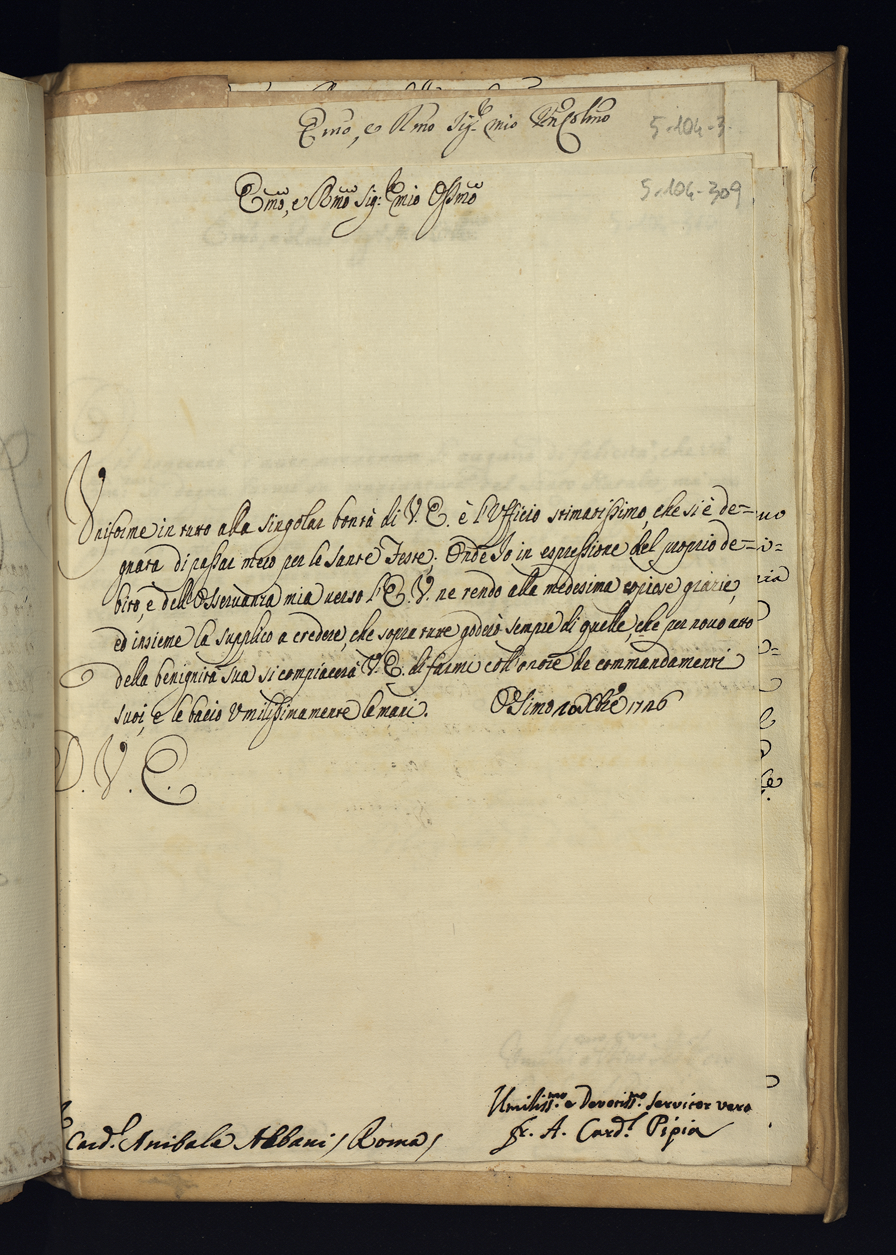 Emo, e Rmo Sigre mio
5-104-3
Emo, e Rmo Sig:re mio Ossmo
5-104-309
Uniforme in tutto alla singolar bontà di V. E. è l'Ufficio stimatissimo, che si è de=
gnata di passar meco per le Sante Feste; Onde Io in espressione del proprio de=
bito, e dell'Osservanza mia verso l'E. V. ne rendo alla medesima copiose grazie,
ed insieme la supplico a credere, che sopra tutte goderò sempre di quelle, che per novo atto
della benignità sua si compiacerà V. E. di farmi coll'onore de commandamenti
suoi, e le bacio Umilissimamente le mani. Osimo Xbre 1726
D. V. E.
Umiliss.mo e Devotiss.mo Servitor vero
Card.l Anibale Albani / Roma /
fr. A. Card.l Pipia